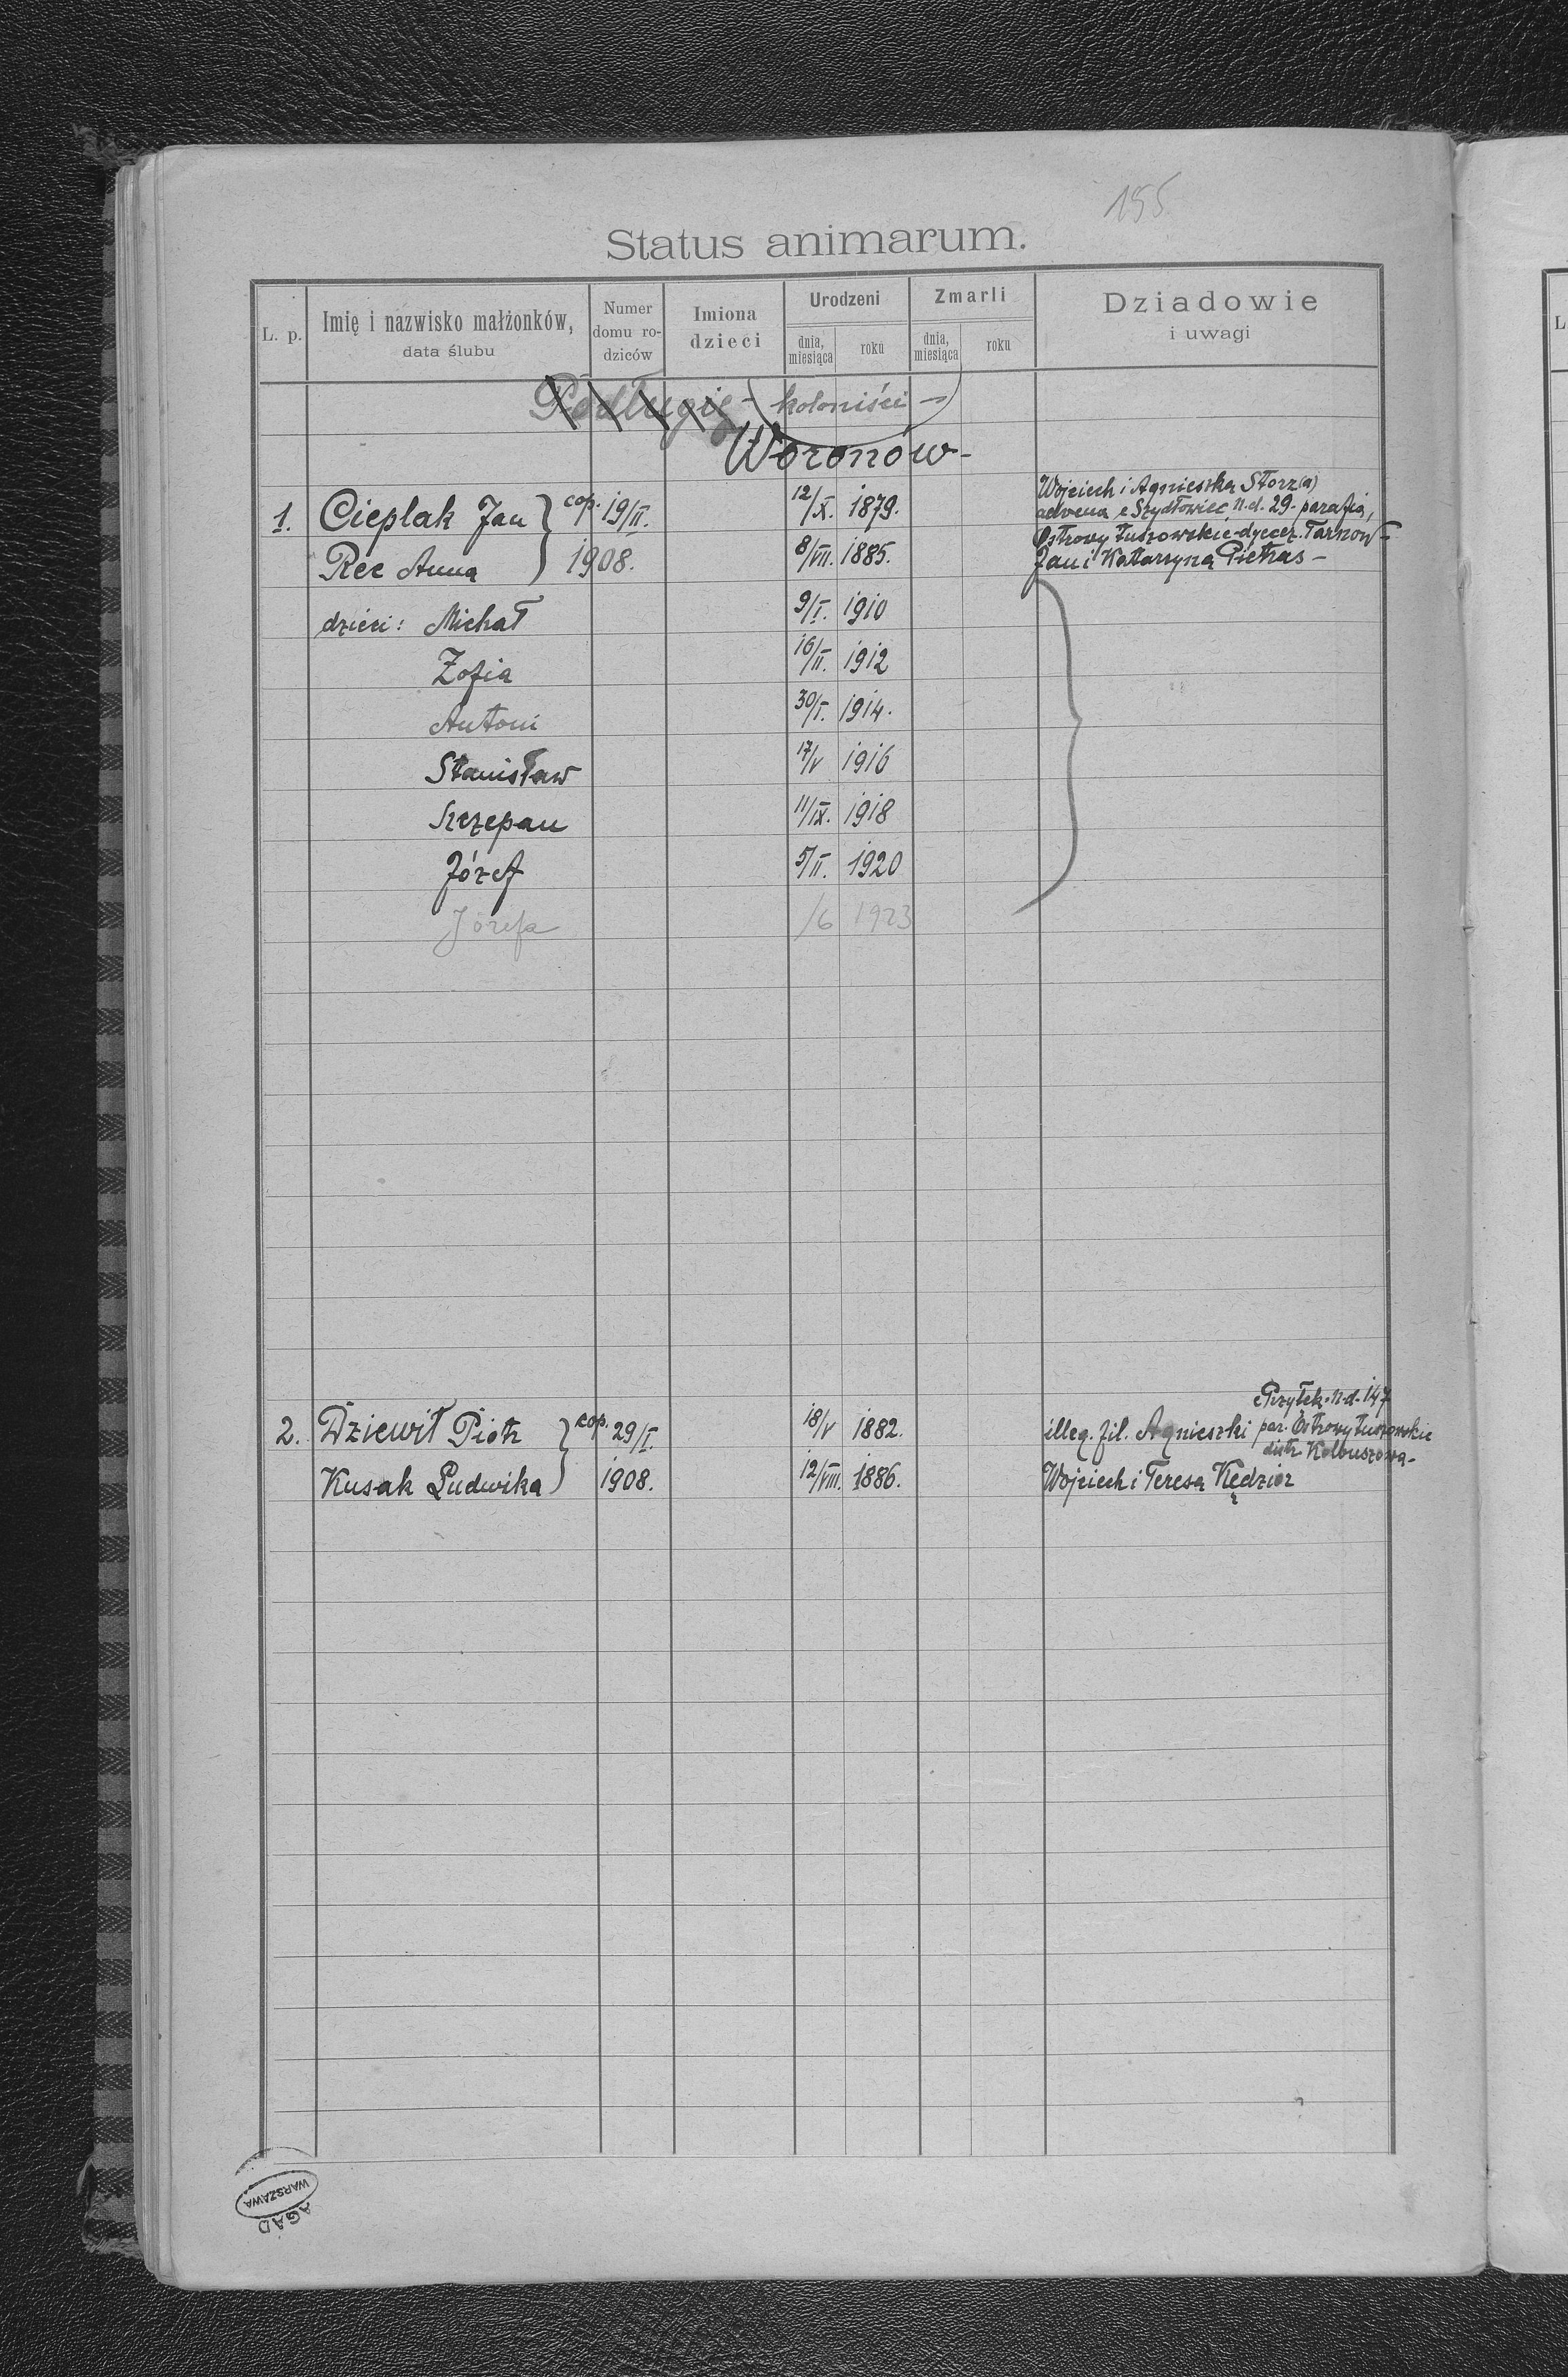 155
Status animarum.
L. p.
Imię i nazwisko małżonków,
data ślubu
Numer
domu ro-
dziców
Imiona
dzieci
Urodzeni
dnia,
miesiąca
roku
Zmarli
dnia,
miesiąca
roku
Dziadowie
i uwagi
(koloniści -)
Woronów -
1. Cieplak Jan } cop. 19/II. 12/X. 1879. Wojciech i Agnieszka Storz(a)
advena e Szydłowiec N.d. 29. parafia,
Ostrowy Tuszowskie - dyecez. Tarnow -
Rec Anna 1908. 8/VII. 1885. Jan i Katarzyna Pietras -
dzieci: Michał 9/I. 1910
Zofia 16/II. 1912
Antoni 30/I. 1914.
Stanisław 17/V 1916
Szczepan 11/IX. 1918
Józef 5/II. 1920
Józefa /6 1923
e Przyłęk. N.d. 147
2. Dziewit Piotr } cop. 29/I. 18/V 1882. illeg. fil. Agnieszki par. Ostrowy Tuszowskie
distr. Kolbuszowa -
Kusak Ludwika 1908. 12/VIII. 1886. Wojciech i Teresa Kędzior
AGAD
WARSZAWA